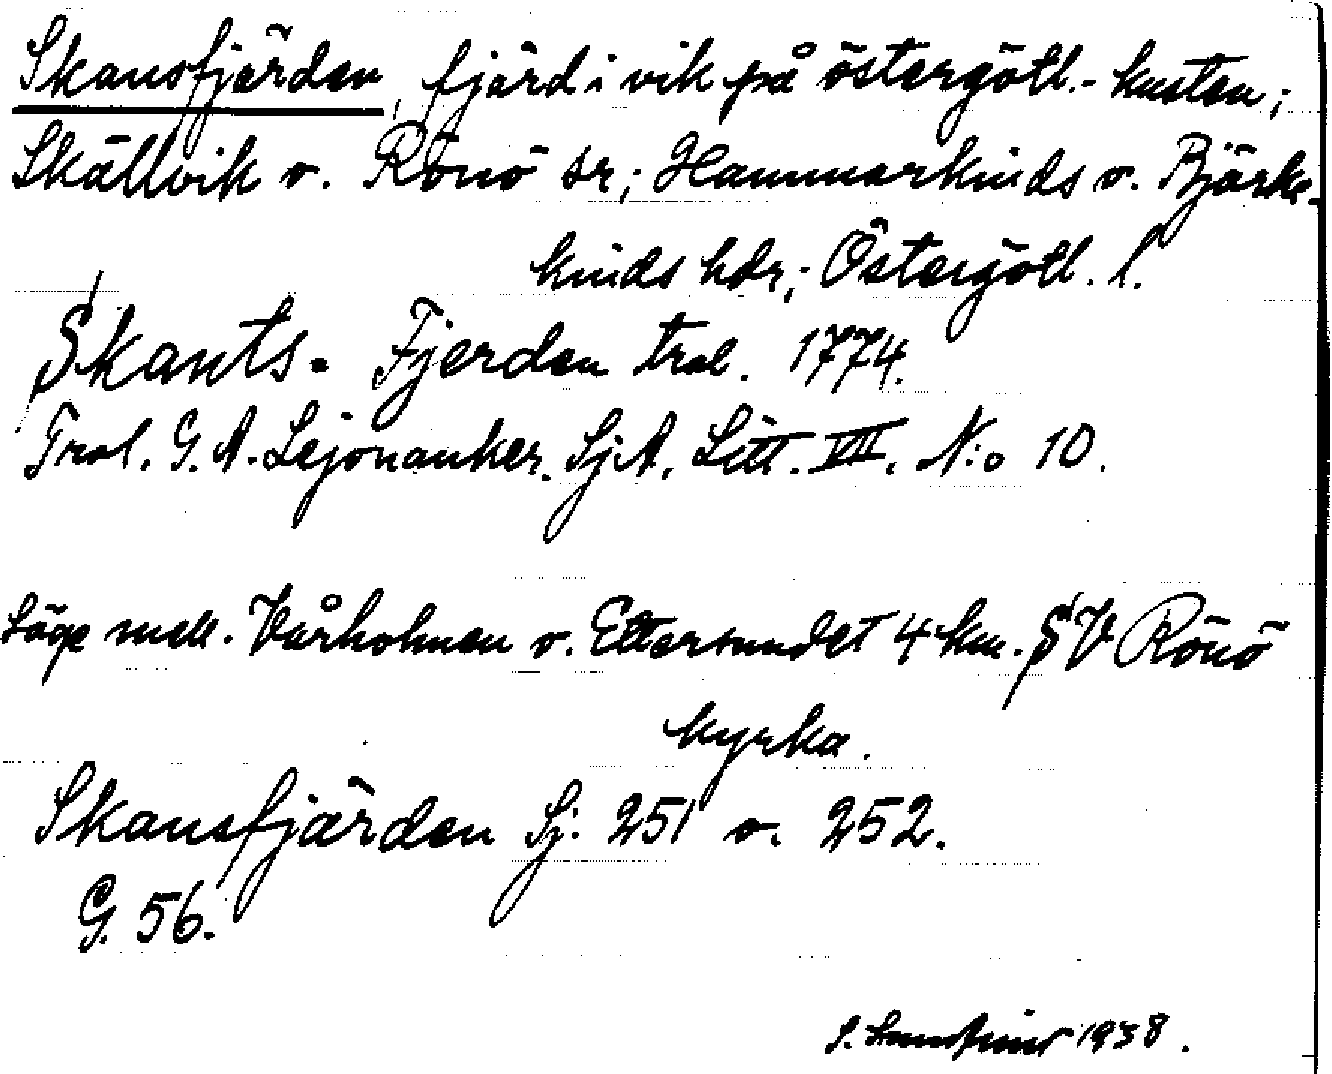 Skansfjärden, fjärd i vik på östergötl.-kusten;
Skällvik o. Rönö sr; Hammarkinds o. Björke-
kinds hdr; Östergötl. l.
Skants-Fjerden trol. 1774.
Trol. G. A. Lejonanker. SjA. Litt. VII. N:o 10.
Läge mell. Vårholmen o. Ettersundet 4 km. SV Rönö
kyrka.
Skansfjärden Sj. 251 o. 252.
G. 56.
S. 1938.